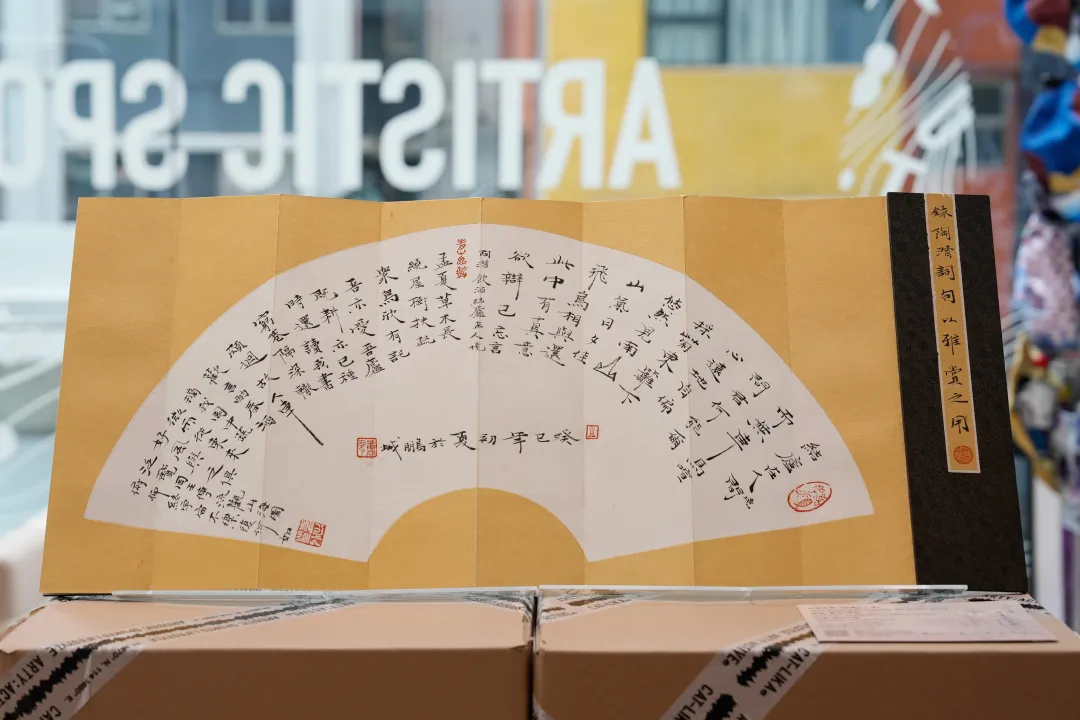 ARTISTIC SPO
錄陶潛詞句以雅賞之用
結廬在人境
而無車馬喧
問君何能爾
心遠地自偏
採菊東籬下
悠然見南山
山氣日夕佳
飛鳥相與還
此中有真意
欲辯已忘言
陶潛飲酒結廬在人境
孟夏草木長
繞屋樹扶疏
衆鳥欣有託
吾亦愛吾廬
既耕亦已種
時還讀我書
窮巷隔深轍
頗迴故人車
歡言酌春酒
摘我園中蔬
微雨從東來
好風與之俱
泛覽周王傳流觀山海圖
俯仰終宇宙不樂復何如
癸巳年初夏於鵬城
ARTY-ACT
CAT-LIKA®
CAT-LIKA®